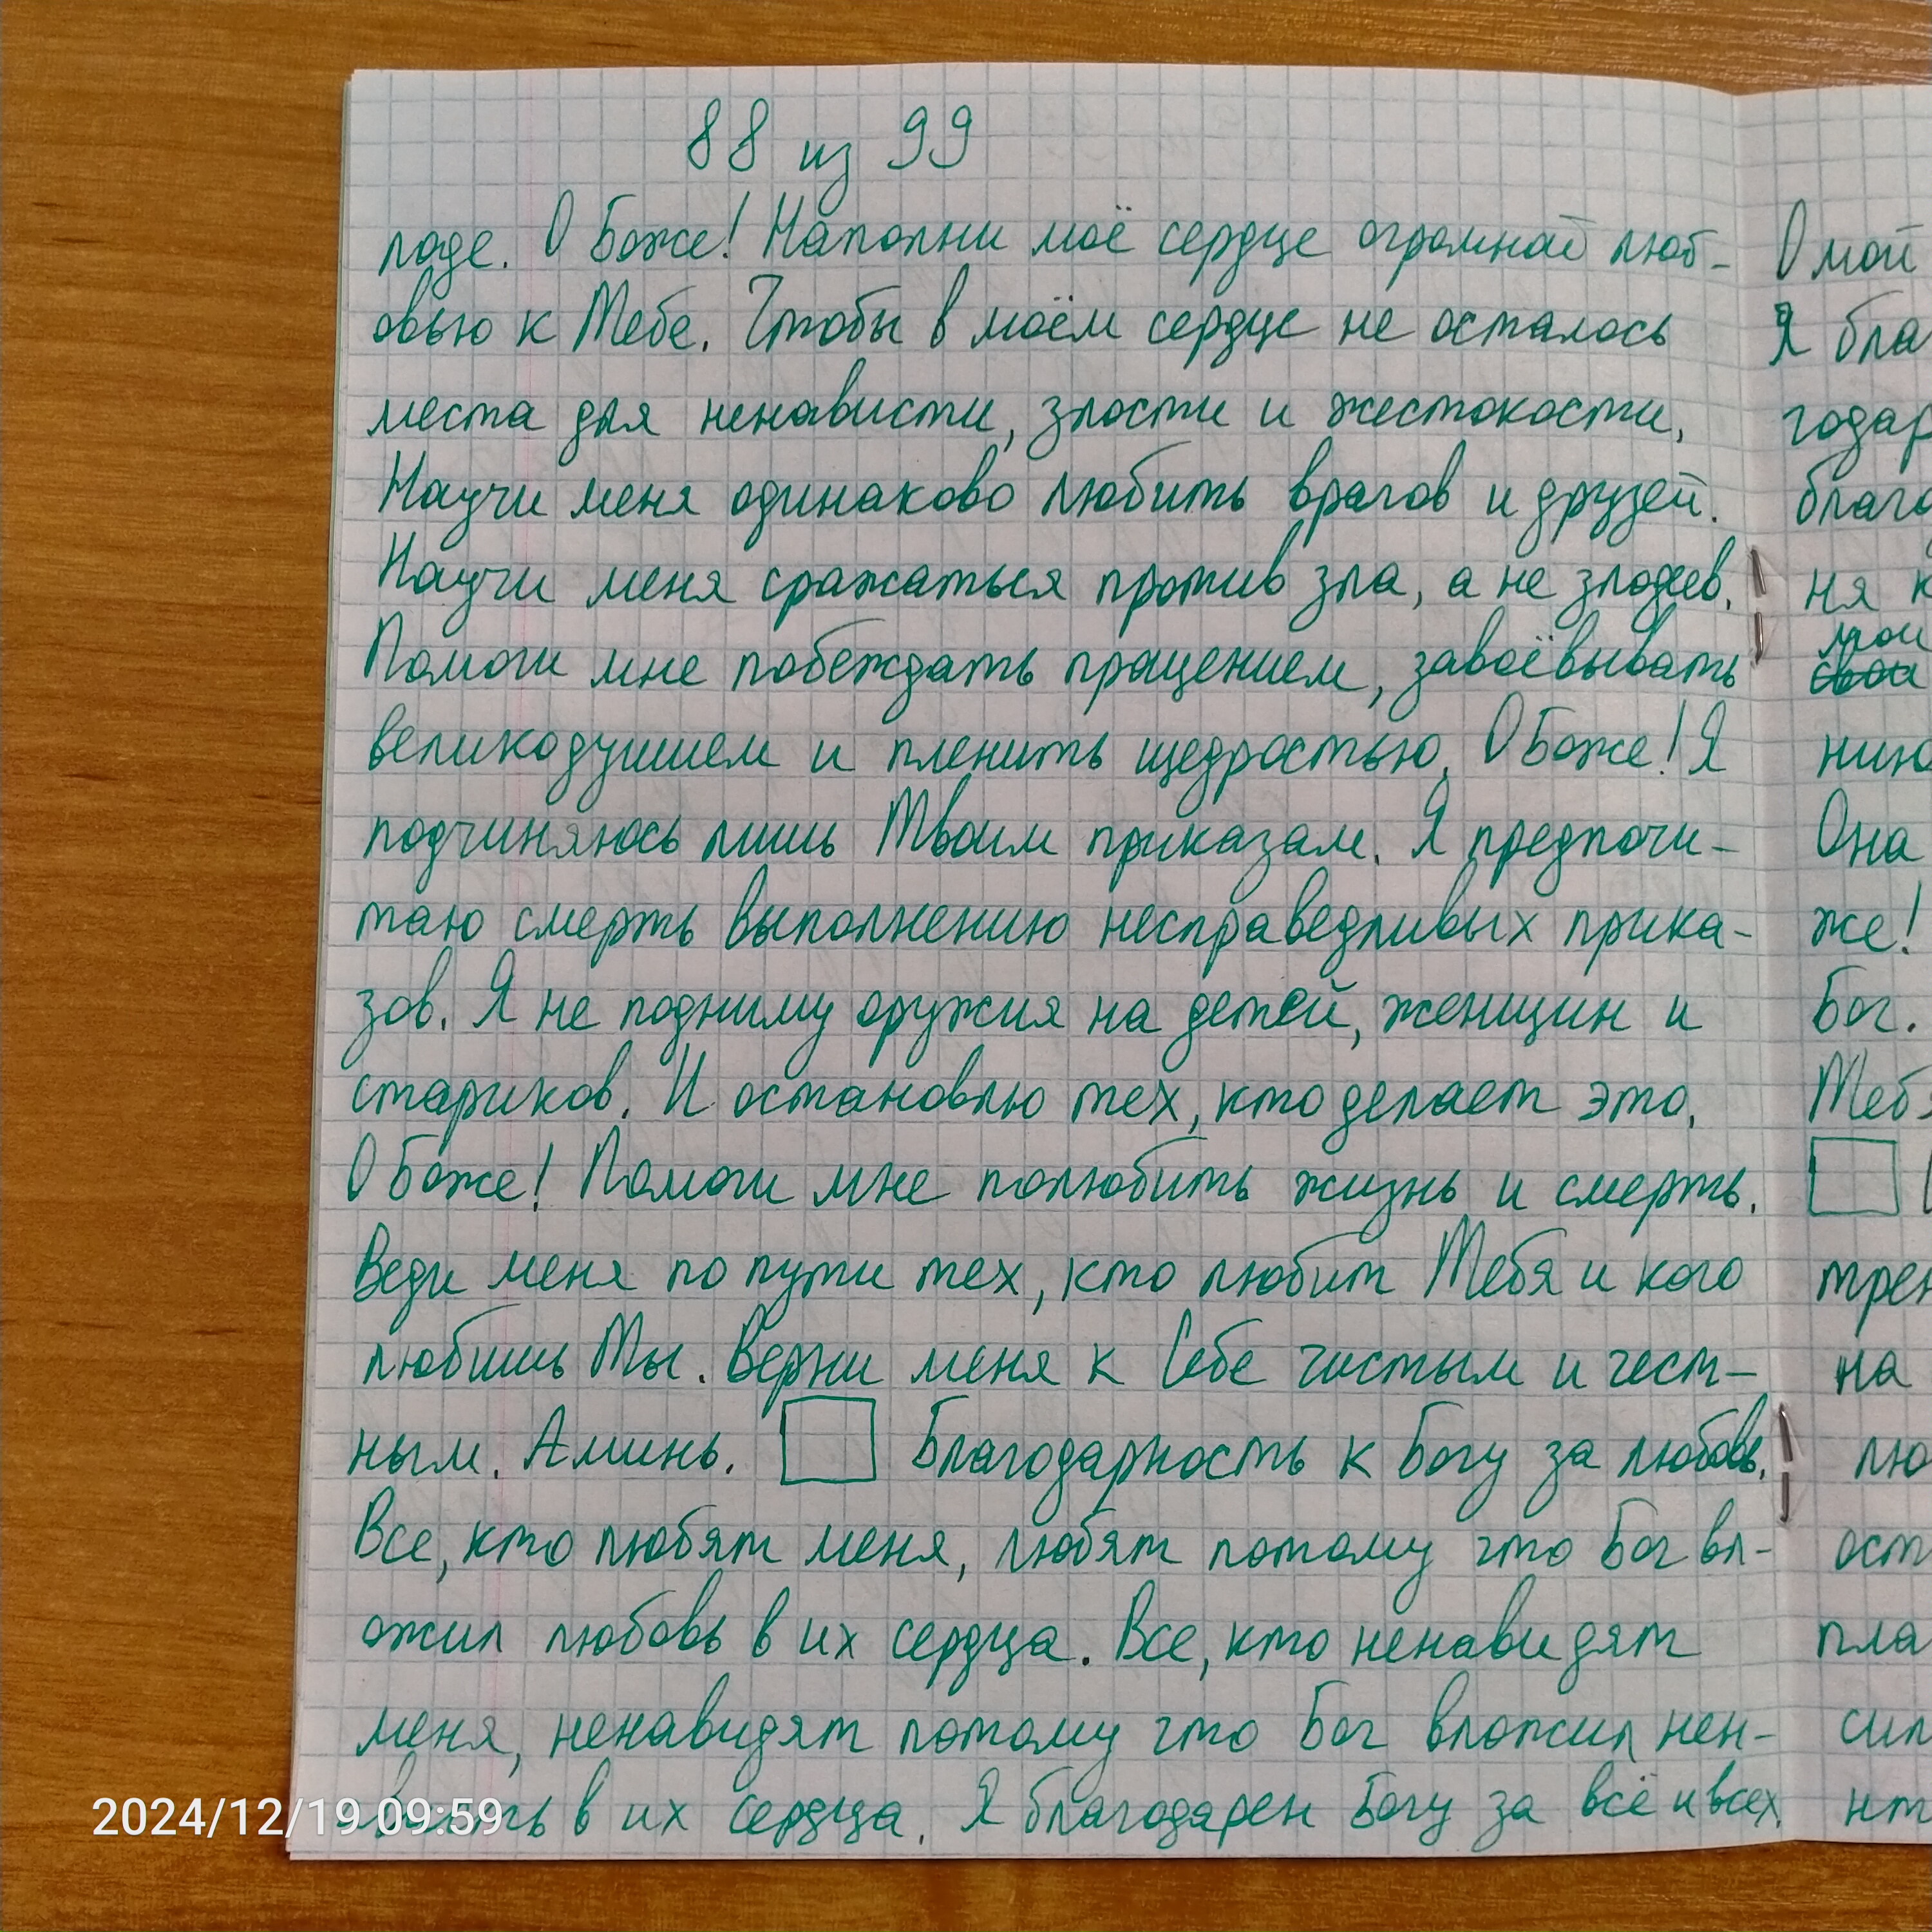 88 из 99
лоде. О Боже! Наполни моё сердце огромной люб-
овью к Тебе. Чтобы в моём сердце не осталось
места для ненависти, злости и жестокости.
Научи меня одинаково любить врагов и друзей.
Научи меня сражаться против зла, а не злодеев.
Помоги мне побеждать пращением, завоёвывать
великодушием и пленить щедростью. О Боже! Я
подчиняюсь лишь Твоим приказам. Я предпочи-
таю смерть выполнению несправедливых прика-
зов. Я не подниму оружия на детей, женщин и
стариков. И остановлю тех, кто делает это.
О Боже! Помоги мне полюбить жизнь и смерть.
Веди меня по пути тех, кто любит Тебя и кого
любишь Ты. Верни меня к Себе чистым и чест-
ным. Аминь. Благодарность к Богу за любовь.
Все, кто любят меня, любят потому что Бог вл-
ожил любовь в их сердца. Все, кто ненавидят
меня, ненавидят потому что Бог вложил нен-
в их сердца. Я благодарен Богу за всё и всех
О мой
Я бла
годар
благо
ня к
мои
свои
нию
Она
же!
Бог.
Теб
трен
на
лю
ост
пла
сил
нт
2024/12/19 09:59